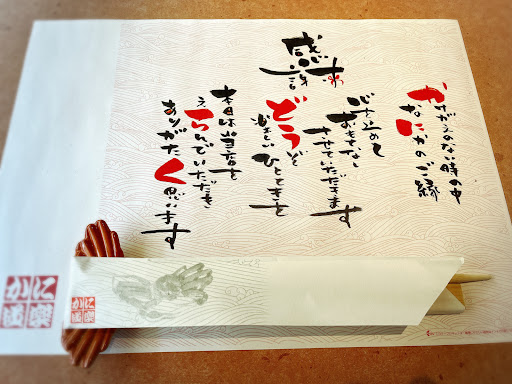 感謝
かけがえのない時の中
なにかのご縁
心を込めて
おもてなし
させていただきます
どうぞ
楽しいひとときを
本日は当店を
えらんでいただき
ありがたく思います
かに
道楽
かに
道楽